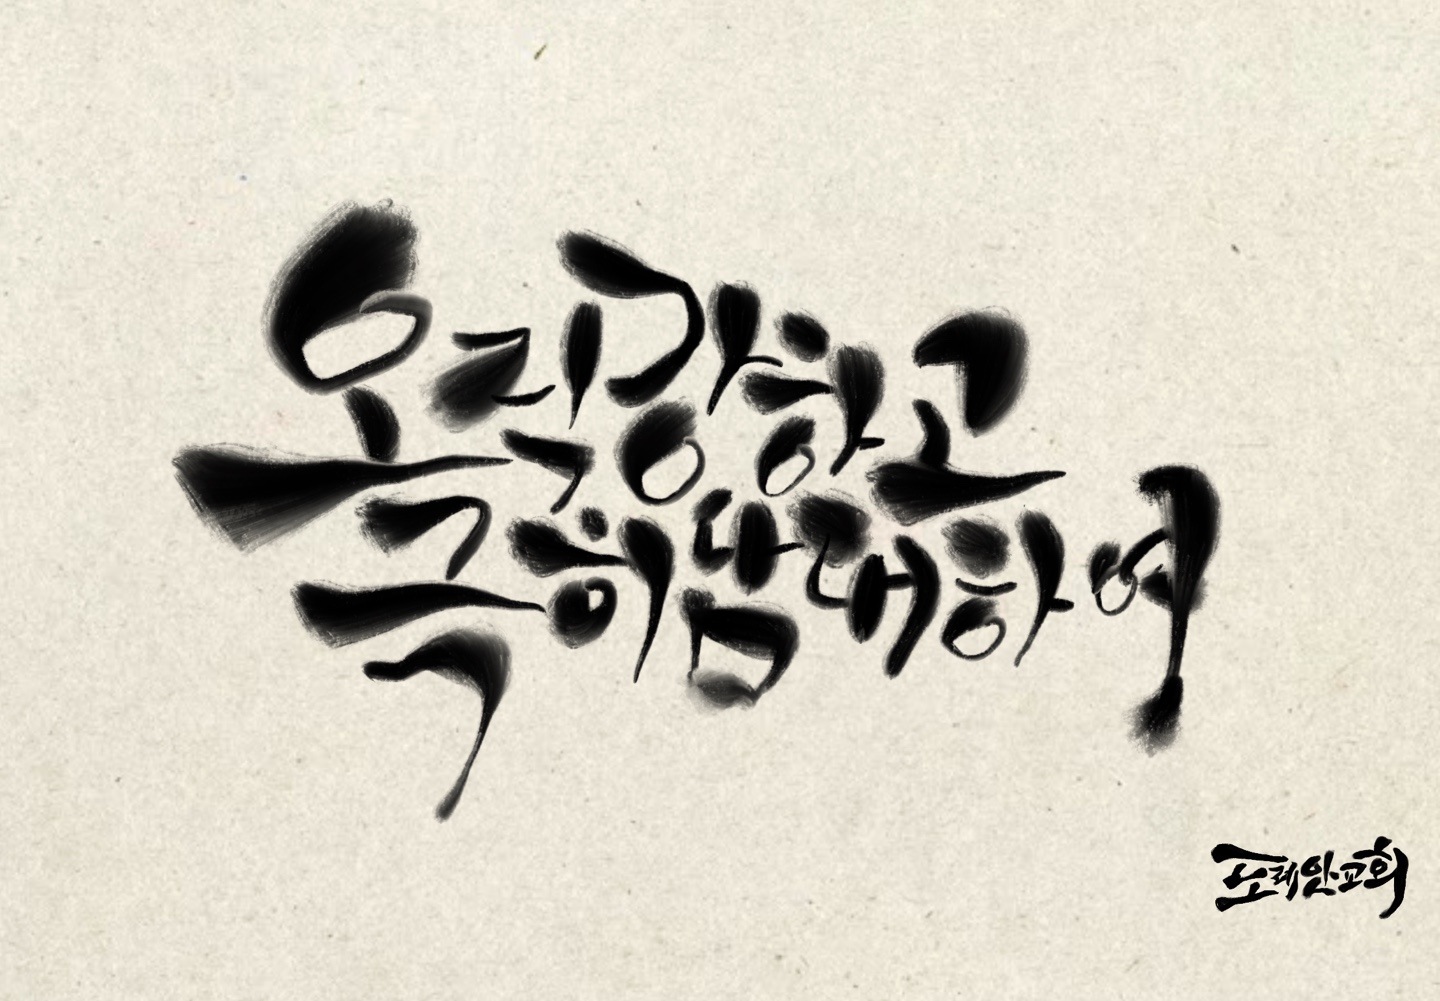 오직 강하고
극히 담대하여
도레안교회